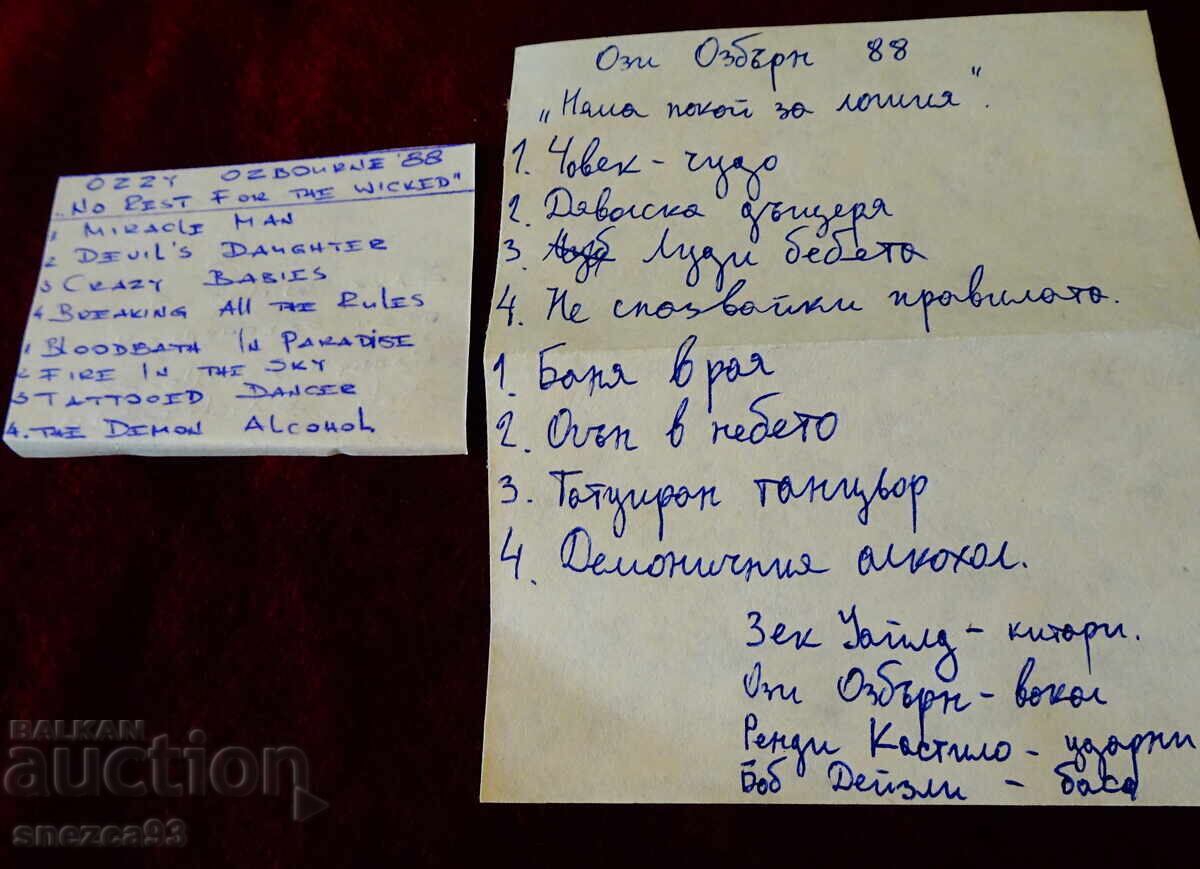 OZZY OZBOURNE '88
„NO REST FOR THE WICKED"
1 MIRACLE MAN
2 DEVIL'S DAUGHTER
3 CRAZY BABIES
4 BREAKING ALL THE RULES
1 BLOODBATH IN PARADISE
2 FIRE IN THE SKY
3 TATTOOED DANCER
4. THE DEMON ALCOHOL
Ози Озбърн 88
„Няма покой за лошия".
1. Човек - чудо
2. Дяволска дъщеря
3. Луди бебета
4. Не спазвайки правилата.
1. Баня в рая
2. Огън в небето
3. Татуиран танцьор
4. Демоничния алкохол.
Зек Уайлд - китари.
Ози Озбърн - вокал
Ренди Кастило - ударни
Боб Дейзли - баса
BALKAN
auction
snezca93